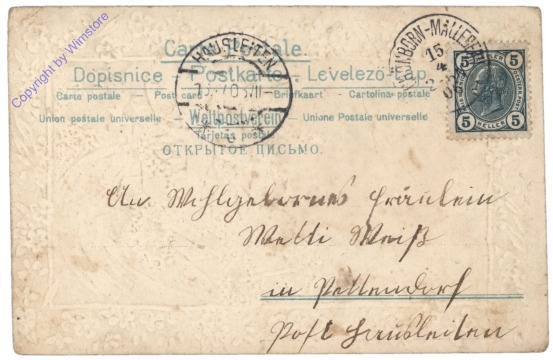 Copyright by Wimstore
Carte postale.
Dopisnice – Postkarte – Levelező-Lap.
Carte postale – Post card – Briefkaart – Cartolina postale
Union postale universelle – Weltpostverein – Unione postale universale
Tarjetas postal
ОТКРЫТОЕ ПИСЬМО.
HAUSLEITEN
15
5 5
5 HELLER 5
An Wohlgebornes Fräulein
Wetti Weiß
in Pettendorf
Post Hausleiten